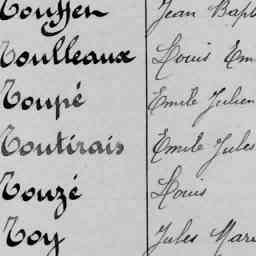 Jean Bapt
Toulleaux Louis Em
Toupé Emile Julien
Toutirais Emile Jules
Touzé Louis
Toy Jules Mari